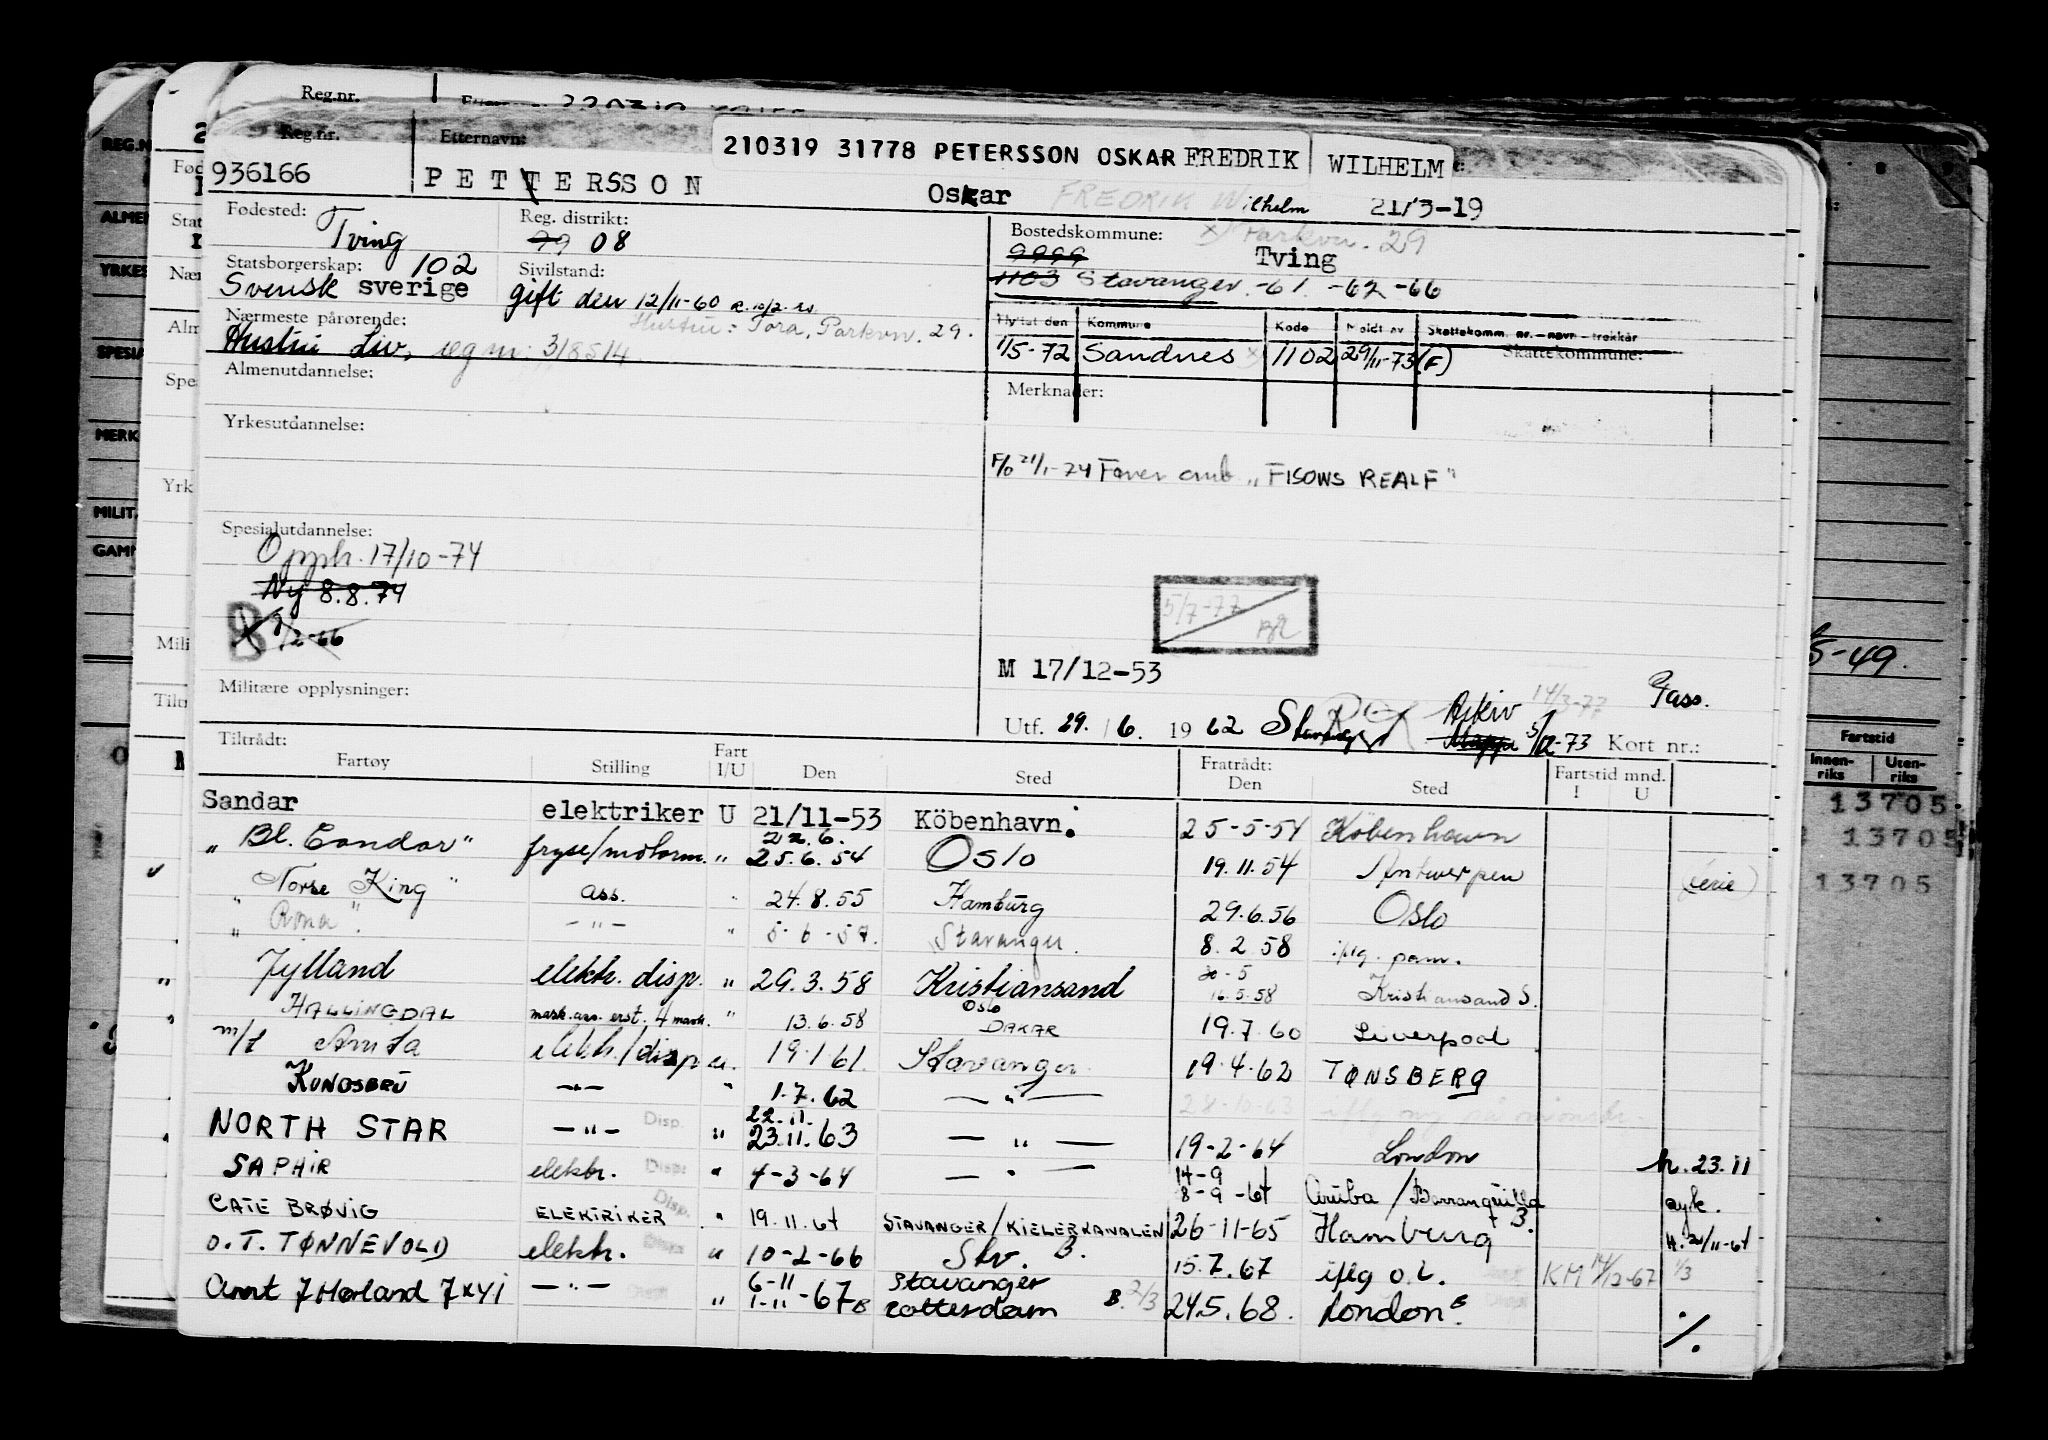 Reg.nr.
Reg.nr. Etternavn: 210319 31778 PETERSSON OSKAR FREDRIK WILHELM
936166 PETTERSSON Oskar FREDRIK Wilhelm 21/3-19
Fødested: Tving Reg. distrikt: 99 08 Bostedskommune: x) Parkvn. 29
9999 Tving
Statsborgerskap: 102 Sivilstand: 1103 Stavanger -61 -62 -66
Svensk sverige gift den 12/11-60
Nærmeste pårørende: Hustru: Tora, Parkvn. 29.
Hustru Liv, reg nr. 318514
Flyttet den Kommune Kode Meldt av Skattekomm. nr. - navn - trekkår
1/5-72 Sandnes x) 1102 29/11-73 (F) Skattekommune:
Almenutdannelse: Merknader:
Yrkesutdannelse:
F/o 21/1-74 Farer omb. "FISOWS REALF"
Spesialutdannelse:
Opph. 17/10-74
Ny 8.8.74
5/7-77
9/2-66
M 17/12-53
Militære opplysninger: 14/3-77 Pass.
Utf. 29./6. 1962 Arkiv
Mappe 5/12-73 Kort nr.:
Tiltrådt: Fratrådt:
Fartøy Stilling Fart I/U Den Sted Den Sted Fartstid mnd. I U
Sandar elektriker U 21/11-53 Köbenhavn. 25-5-54 Köbenhavn
22.6.
"Bl. Condor" fryse/motorm. " 25.6.54 Oslo 19.11.54 Antwerpen (ferie)
"Norse King" ass. " 24.8.55 Hamburg 29.6.56 Oslo
"Rona" -"- " 5-6-57. Stavanger. 8.2.58 iflg. pam.
Jylland elektr. disp. " 29.3.58 Kristiansand 16.5.58 Kristiansand S.
Oslo
HALLINGDAL mask.ass. erst. 4 mask. " 13.6.58 DAKAR 19.7.60 Liverpool
m/t Anita elektr./disp u. 19.1.61. Stavanger 19.4.62 TØNSBERG
KUNGSBRU -"- " 1.7.62 -"- 28-10-63
22.11.
NORTH STAR -"- Disp. " 23.11.63 -"- 19-2-64 London h. 23.11
14-9
SAPHIR elektr. Disp. " 4-3-64 -"- 8-9-64 Aruba / Barranquilla avk.
CATE BRØVIG ELEKTRIKER Disp. " 19.11.64 STAVANGER/KIELERKANALEN 26-11-65 Hamburg B. H. 20/11-64
O.T. TØNNEVOLD elektr. Disp. " 10-2-66 Stv. B. 15.7.67 iflg o.l. KM 14/12-67 1/3
6-11 Stavanger
Arnt J Mørland 7xyi -"- Disp. " 1-11-67 B Rotterdam B. 2/3 24.5.68. London B. ./.
REG.N
ALME
YRKES
SPESIA
MERK
MILIT
GAMM
Fød
Stat
Nær
Alm
Spe
Yrk
Mili
Tiltr
5-49.
Fartstid
Innen-riks Uten-riks
13705
13705
13705